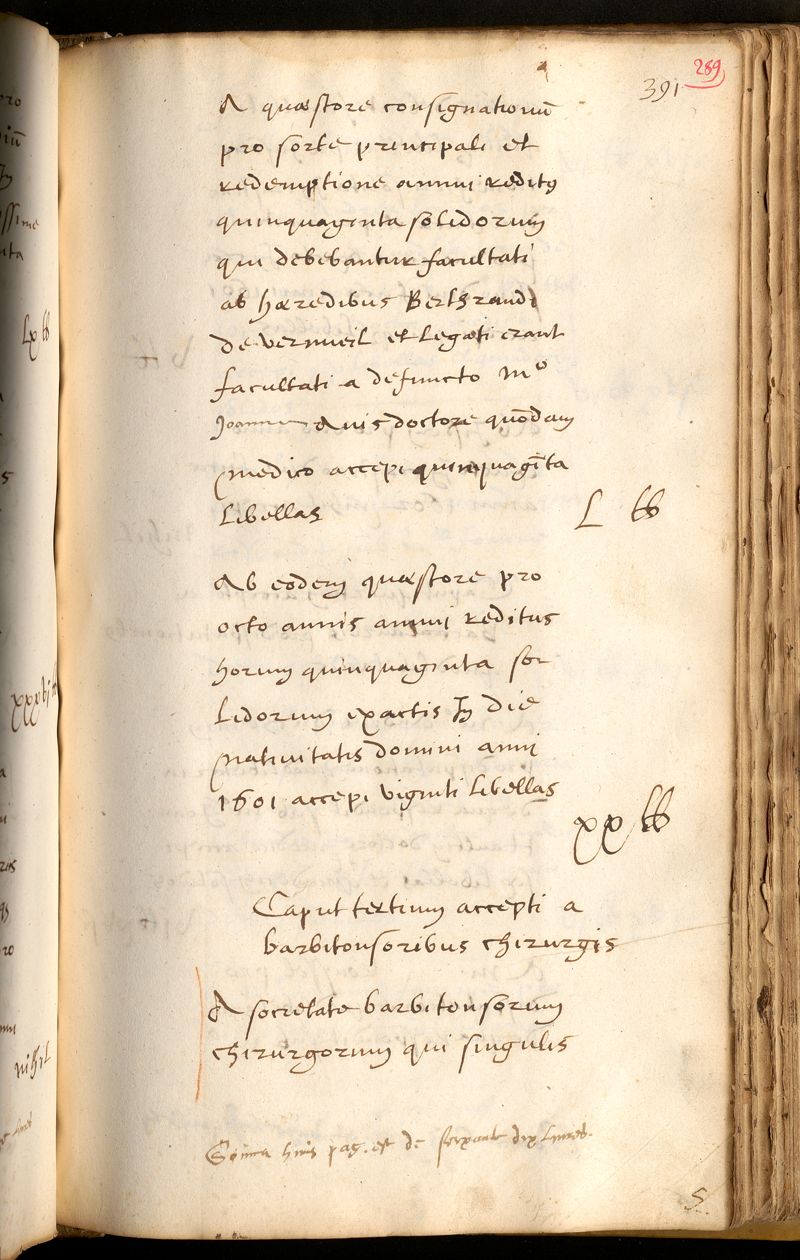 289
391
A quæstore consignationū
pro sorte principali et
redemptione annui reditꝰ
quinquaginta solidorum
qui debebantur facultati
ab hæredibus Berthrandi
de vernueil et legati erant
facultati a defuncto mº
Joanne Avis doctore quōdam
medico accepi quinquagīta
libellas
L lb
Ab eodem quæstore pro
octo annis annui reditus
horum quinquaginta so
lidorum exactis In die
nativitatis domini anni
1601 accepi viginti libellas
xx lb
Caput tertium accepti a
barbitonsoribus chirurgis
A societate barbitonsorum
chirurgorum qui singulis
huius pag. est de soixante dix livres.
5